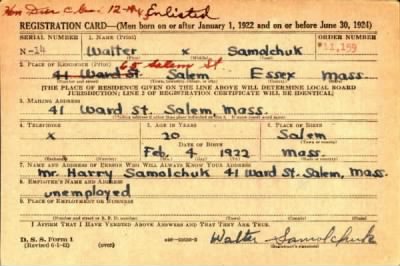 Enlisted
REGISTRATION CARD—(Men born on or after January 1, 1922 and on or before June 30, 1924)
SERIAL NUMBER 1. NAME (Print) ORDER NUMBER
N-14 Walter x Samolchuk 11,159
(First) (Middle) (Last)
2. PLACE OF RESIDENCE (Print) 65 Salem St.
41 Ward St. Salem Essex Mass
[THE PLACE OF RESIDENCE GIVEN ON THE LINE ABOVE WILL DETERMINE LOCAL BOARD
JURISDICTION; LINE 2 OF REGISTRATION CERTIFICATE WILL BE IDENTICAL]
3. MAILING ADDRESS
41 Ward St. Salem, Mass.
4. TELEPHONE 5. AGE IN YEARS 6. PLACE OF BIRTH
x 20 Salem
DATE OF BIRTH
Feb. 4 1922 Mass.
7. NAME AND ADDRESS OF PERSON WHO WILL ALWAYS KNOW YOUR ADDRESS
Mr. Harry Samolchuk 41 Ward St. Salem, Mass.
8. EMPLOYER'S NAME AND ADDRESS
unemployed
9. PLACE OF EMPLOYMENT OR BUSINESS
I AFFIRM THAT I HAVE VERIFIED ABOVE ANSWERS AND THAT THEY ARE TRUE.
D. S. S. Form 1
(over) Walter Samolchuk